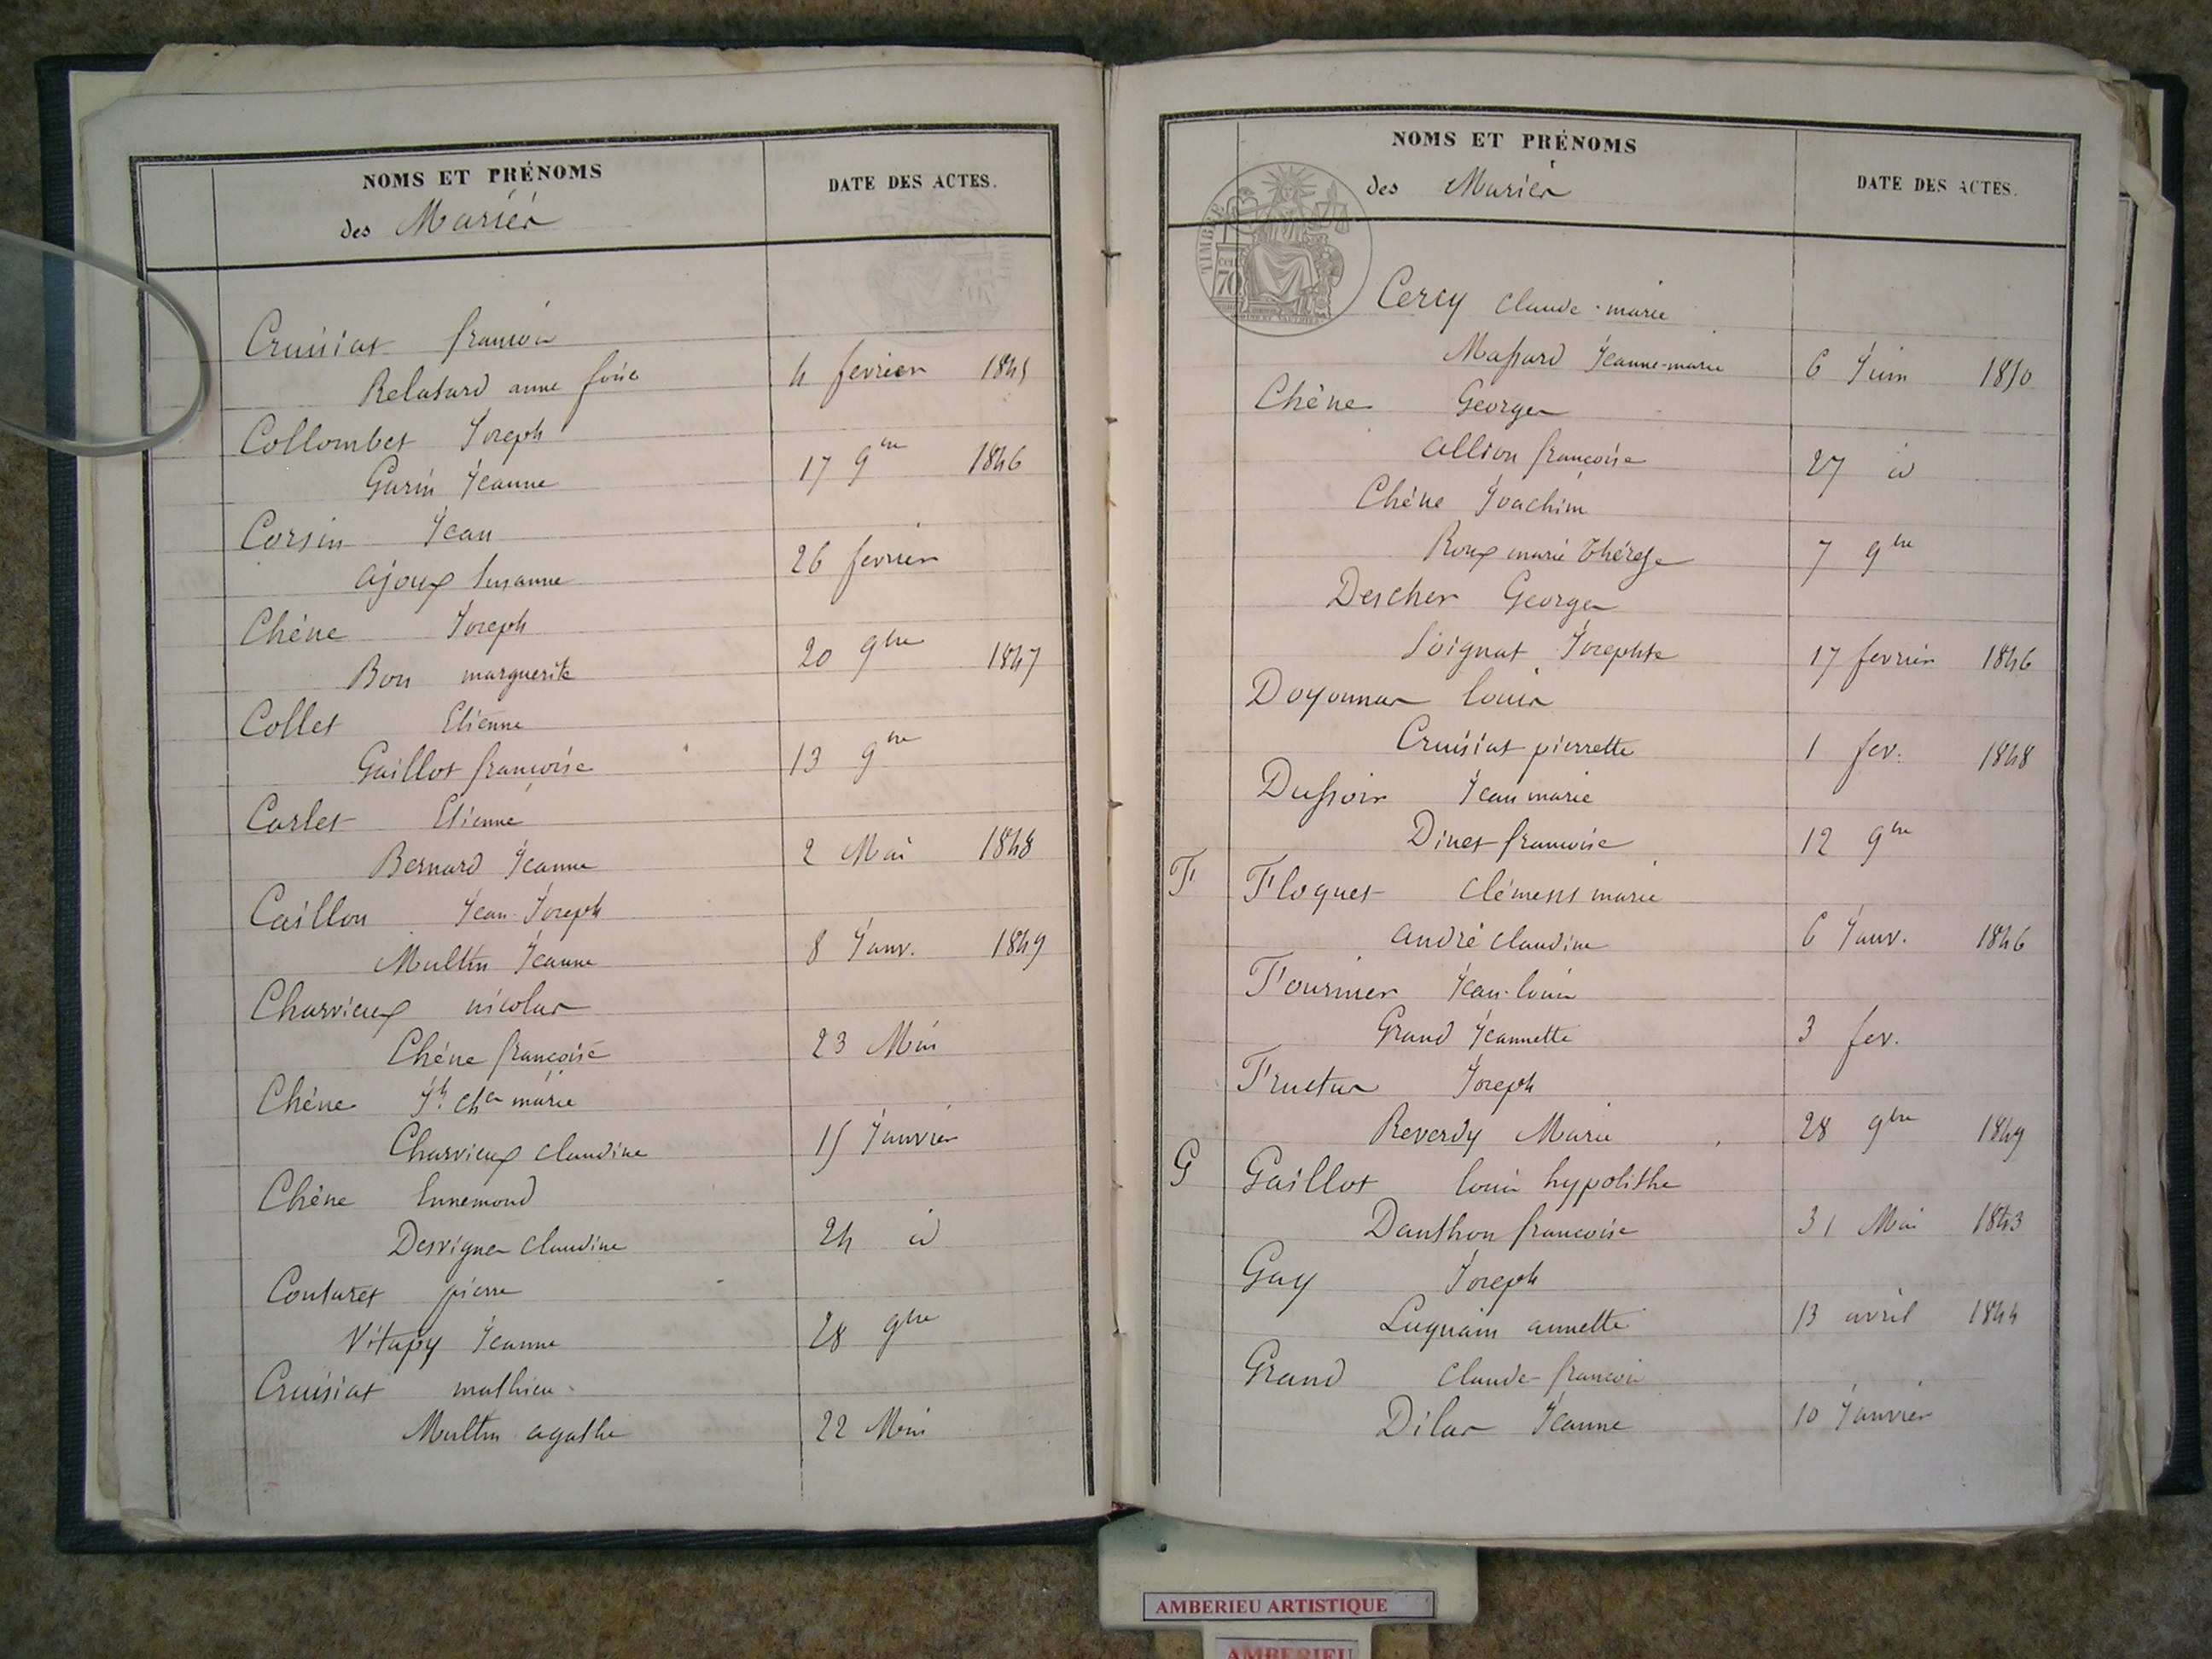 NOMS ET PRÉNOMS
des Mariés
DATE DES ACTES.
Cruisiat françois
Relatard anne 4 fevrier 1845
Collombet Joseph
Garin Jeanne 17 9bre 1846
Corsin Jean
ajoux Susanne 26 fevrier
Chêne Joseph
Bon marguerite 20 9bre 1847
Collet Etienne
Gaillot françoise 13 9bre
Carlet Etienne
Bernard Jeanne 2 Mai 1848
Caillon Jean-Joseph
Multin Jeanne 8 Janv. 1849
Charvieux nicolas
Chêne françoise 23 Mai
Chêne Jh. chs marie
Charvieux claudine 15 Janvier
Chêne Ennemond
Desvignes claudine 24 id
Couturet pierre
Vitapy Jeanne 28 9bre
Cruisiat mathieu
Multin agathe 22 Mai
NOMS ET PRÉNOMS
des Mariés
DATE DES ACTES.
TIMBRE
70
Cercy claude-marie
Massard Jeanne-marie 6 Juin 1850
Chêne Georges
allion françoise 27 id
Chêne Joachim
Roux marie thérese 7 9bre
Descher Georges
Soignat Josephte 17 fevrier 1846
Doyonnas louis
Cruisiat pierrette 1 fev. 1848
Dussoir Jean marie
Dinet francoise 12 9bre
F Floquet clément marie
andré claudine 6 Janv. 1846
Fournier Jean-louis
Grand Jeannette 3 fev.
Fructus Joseph
Reverdy Marie 28 9bre 1849
G Gaillot louis hypolithe
Danthon francoise 31 Mai 1843
Gay Joseph
Luquain annette 13 avril 1844
Grand claude-francois
Dilas Jeanne 10 Janvier
AMBERIEU ARTISTIQUE
AMBERIEU